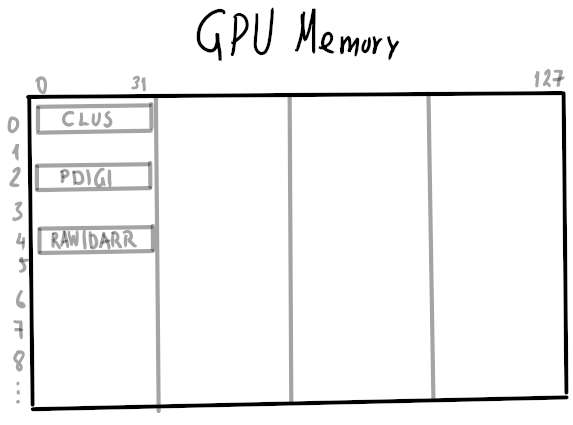 GPU Memory
0 31 127
0 CLUS
1
2 PDIGI
3
4 RAWIDARR
5
6
7
8
...